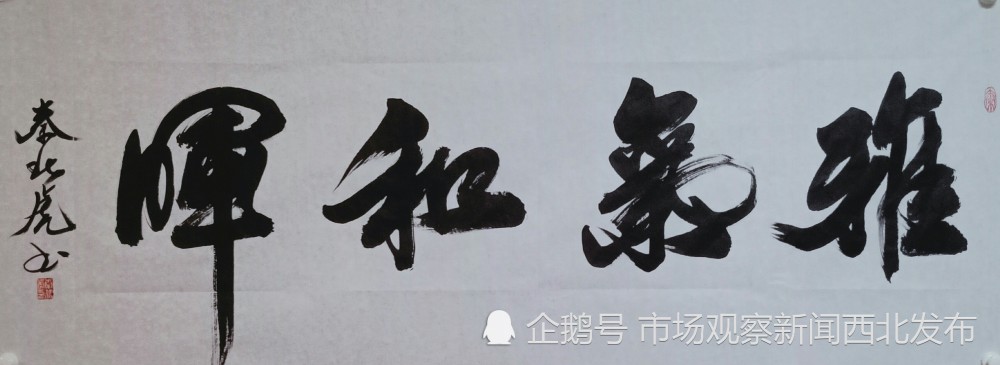 雅氣和暉
秦北虎书
企鹅号 市场观察新闻西北发布